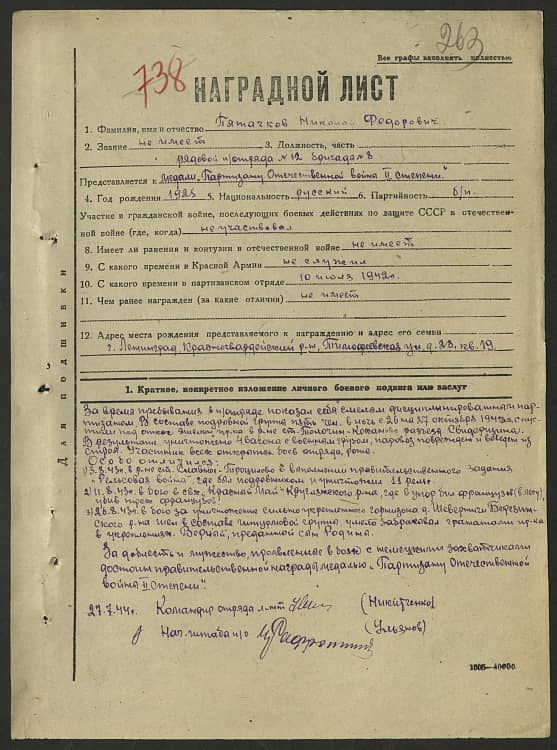 263
Все графы заполнять полностью
738
НАГРАДНОЙ ЛИСТ
1. Фамилия, имя и отчество Пятачков Николай Федорович.
2. Звание не имеет 3. Должность, часть
рядовой п/отряда №12 бригада №8
Представляется к медали „Партизану Отечественной войны II степени".
4. Год рождения 1925 5. Национальность русский 6. Партийность б/п.
Участие в гражданской войне, последующих боевых действиях по защите СССР в отечествен-
ной войне (где, когда) не участвовал
8. Имеет ли ранения и контузии в отечественной войне не имеет
9. С какого времени в Красной Армии не служил
10. С какого времени в партизанском отряде 10 июля 1942г.
11. Чем ранее награжден (за какие отличия) не имеет
12. Адрес места рождения представляемого к награждению и адрес его семьи
г. Ленинград Красногвардейский р-н, ул. д. 23, кв. 19.
Для подшивки
1. Краткое, конкретное изложение личного боевого подвига или заслуг
За время пребывания в п/отряде показал себя смелым дисциплинированным пар-
тизаном. В составе подрывной группы пять чел. в ночь с 26 на 27 октября 1942г. спус-
тили под откос эшелон пр-ка в р-не ст. Толочин-Коханово разъезд
В результате уничтожено 4 вагона с военным грузом, паровоз поврежден и выведен из
строя. Участник всех открытых боев отряда, роте.
Особо отличился:
1) 3.8.43г. в р-не ст. Славное - Троцилово в выполнении правительственного задания
„Рельсовая война", где был подрывником и уничтожил 11 рельс.
2) 11.8.43г. в бою в свх. Красный Май - Круглянского р-на, где в упор бил французов (в лесу),
убив трёх французов.
3) 26.8.43г. в бою за уничтожение сильно укрепленного гарнизона д. Шеверничи Березин-
ского р-на шел в составе штурмовой группы, умело забрасывал гранатами пр-ка
в укреплениях. Верный, преданный сын Родины.
За доблесть и мужество, проявленные в боях с немецкими захватчиками
достоин правительственной награды медалью „Партизану Отечественной
войны II степени".
27.7.44г. Командир отряда л-нт (Никитченко)
Нач. штаба п/о (Ульянов)
1605—40000